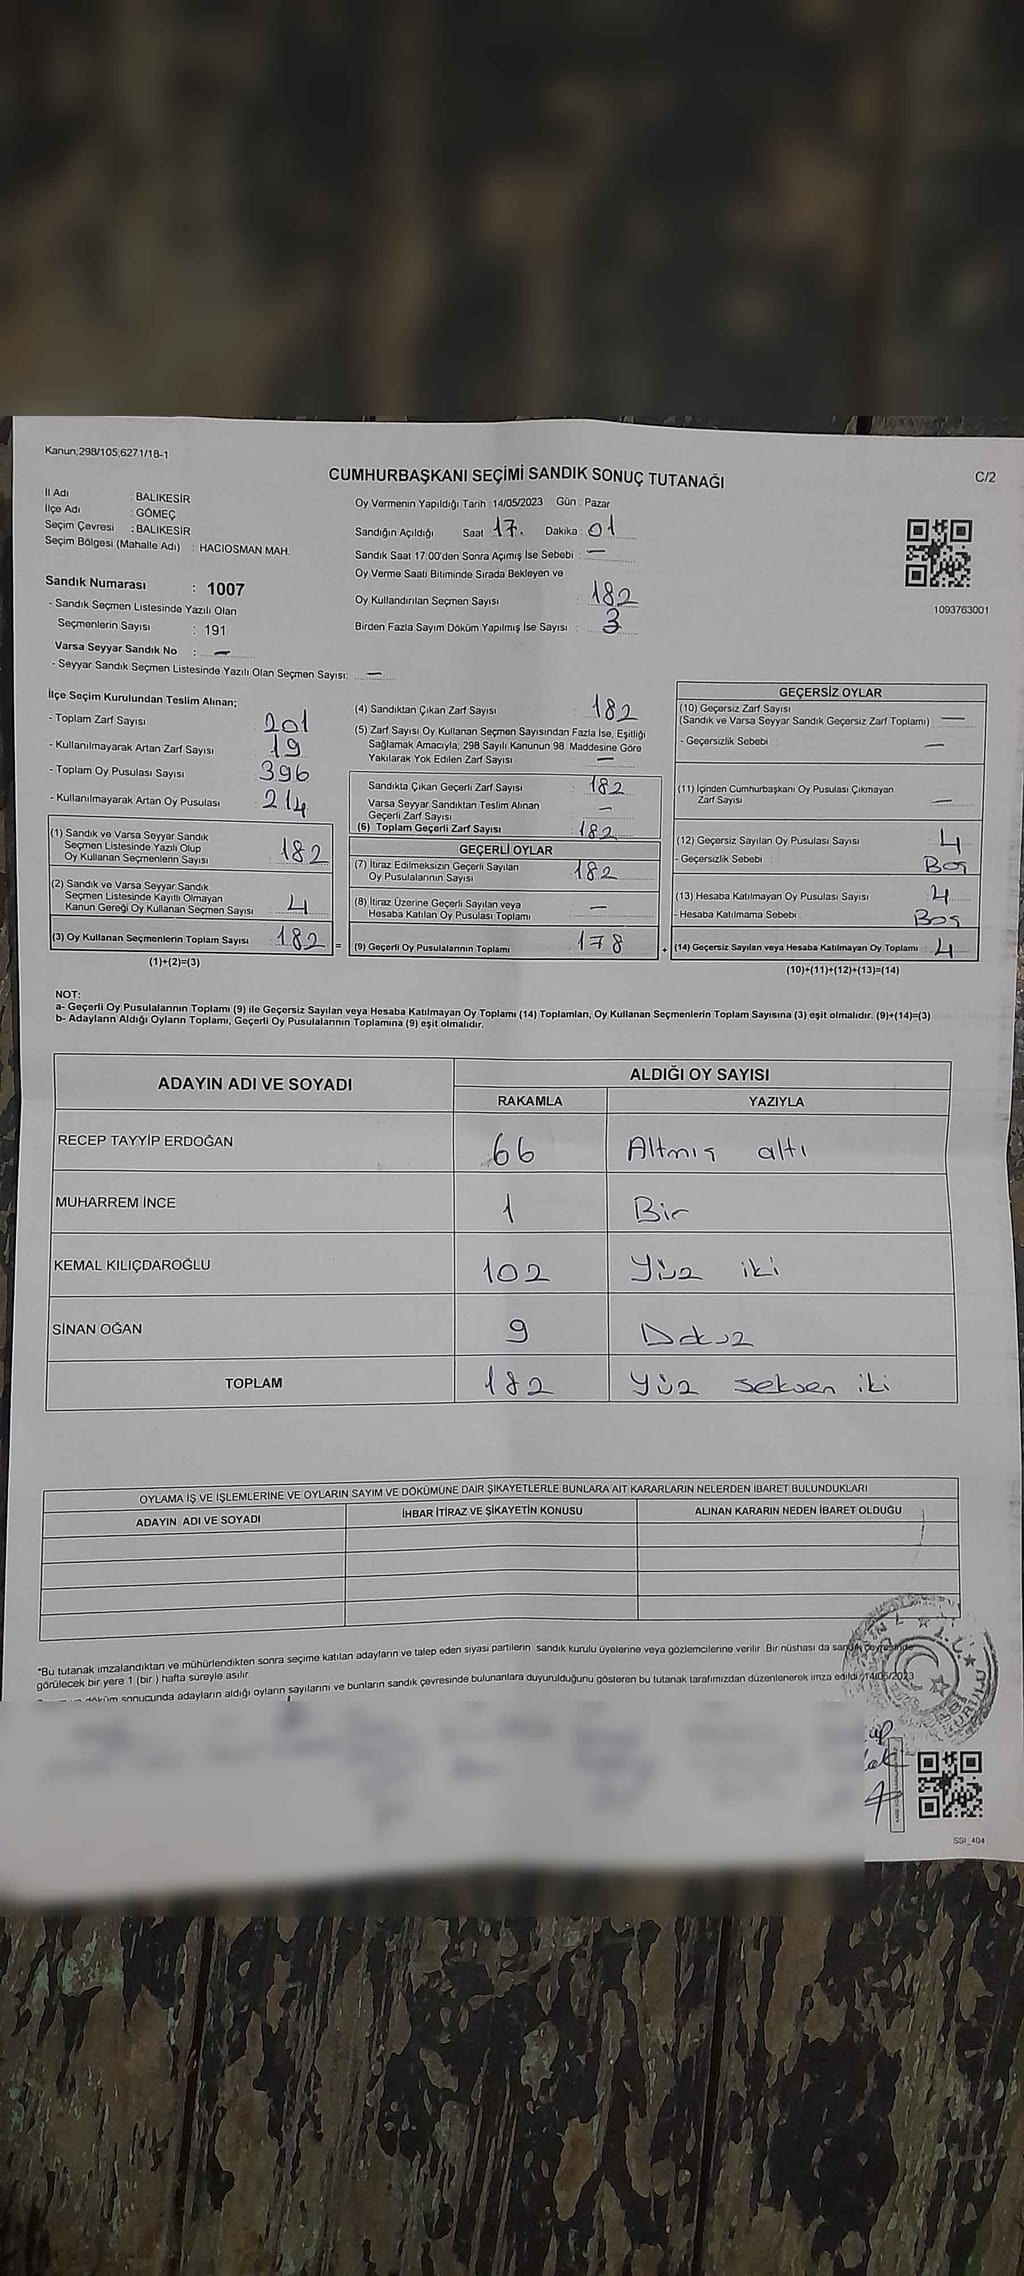 Kanun;298/105,6271/18-1
CUMHURBAŞKANI SEÇİMİ SANDIK SONUÇ TUTANAĞI
C/2
İl Adı : BALIKESİR
İlçe Adı : GÖMEÇ
Seçim Çevresi : BALIKESİR
Seçim Bölgesi (Mahalle Adı) : HACIOSMAN MAH.
Oy Vermenin Yapıldığı Tarih 14/05/2023 Gün : Pazar
Sandığın Açıldığı Saat 17. Dakika : 01
Sandık Saat 17:00'den Sonra Açımış İse Sebebi : —
Oy Verme Saati Bitiminde Sırada Bekleyen ve
Oy Kullandırılan Seçmen Sayısı : 182
Birden Fazla Sayım Döküm Yapılmış İse Sayısı : 3
1093763001
Sandık Numarası : 1007
- Sandık Seçmen Listesinde Yazılı Olan
Seçmenlerin Sayısı : 191
Varsa Seyyar Sandık No : —
- Seyyar Sandık Seçmen Listesinde Yazılı Olan Seçmen Sayısı: —
İlçe Seçim Kurulundan Teslim Alınan;
- Toplam Zarf Sayısı 201
- Kullanılmayarak Artan Zarf Sayısı 19
- Toplam Oy Pusulası Sayısı 396
- Kullanılmayarak Artan Oy Pusulası 214
(1) Sandık ve Varsa Seyyar Sandık
Seçmen Listesinde Yazılı Olup
Oy Kullanan Seçmenlerin Sayısı 182
(2) Sandık ve Varsa Seyyar Sandık
Seçmen Listesinde Kayıtlı Olmayan
Kanun Gereği Oy Kullanan Seçmen Sayısı 4
(3) Oy Kullanan Seçmenlerin Toplam Sayısı 182 =
(1)+(2)=(3)
(4) Sandıktan Çıkan Zarf Sayısı : 182
(5) Zarf Sayısı Oy Kullanan Seçmen Sayısından Fazla İse, Eşitliği
Sağlamak Amacıyla, 298 Sayılı Kanunun 98. Maddesine Göre
Yakılarak Yok Edilen Zarf Sayısı —
Sandıkta Çıkan Geçerli Zarf Sayısı : 182
Varsa Seyyar Sandıktan Teslim Alınan
Geçerli Zarf Sayısı —
(6) Toplam Geçerli Zarf Sayısı : 182
GEÇERLİ OYLAR
(7) İtiraz Edilmeksizin Geçerli Sayılan
Oy Pusulalarının Sayısı 182
(8) İtiraz Üzerine Geçerli Sayılan veya
Hesaba Katılan Oy Pusulası Toplamı —
(9) Geçerli Oy Pusulalarının Toplamı 178 +
GEÇERSİZ OYLAR
(10) Geçersiz Zarf Sayısı
(Sandık ve Varsa Seyyar Sandık Geçersiz Zarf Toplamı) —
- Geçersizlik Sebebi : —
(11) İçinden Cumhurbaşkanı Oy Pusulası Çıkmayan
Zarf Sayısı —
(12) Geçersiz Sayılan Oy Pusulası Sayısı 4
- Geçersizlik Sebebi : Boş
(13) Hesaba Katılmayan Oy Pusulası Sayısı 4
- Hesaba Katılmama Sebebi : Boş
(14) Geçersiz Sayılan veya Hesaba Katılmayan Oy Toplamı : 4
(10)+(11)+(12)+(13)=(14)
NOT:
a- Geçerli Oy Pusulalarının Toplamı (9) ile Geçersiz Sayılan veya Hesaba Katılmayan Oy Toplamı (14) Toplamları, Oy Kullanan Seçmenlerin Toplam Sayısına (3) eşit olmalıdır. (9)+(14)=(3)
b- Adayların Aldığı Oyların Toplamı, Geçerli Oy Pusulalarının Toplamına (9) eşit olmalıdır.
ADAYIN ADI VE SOYADI ALDIĞI OY SAYISI
RAKAMLA YAZIYLA
RECEP TAYYİP ERDOĞAN 66 Altmış altı
MUHARREM İNCE 1 Bir
KEMAL KILIÇDAROĞLU 102 Yüz iki
SİNAN OĞAN 9 Dokuz
TOPLAM 182 Yüz seksen iki
OYLAMA İŞ VE İŞLEMLERİNE VE OYLARIN SAYIM VE DÖKÜMÜNE DAİR ŞİKAYETLERLE BUNLARA AİT KARARLARIN NELERDEN İBARET BULUNDUKLARI
ADAYIN ADI VE SOYADI İHBAR İTİRAZ VE ŞİKAYETİN KONUSU ALINAN KARARIN NEDEN İBARET OLDUĞU
*Bu tutanak imzalandıktan ve mühürlendikten sonra seçime katılan adayların ve talep eden siyasi partilerin sandık kurulu üyelerine veya gözlemcilerine verilir. Bir nüshası da sandık çevresinde
görülecek bir yere 1 (bir) hafta süreyle asılır.
döküm sonucunda adayların aldığı oyların sayılarını ve bunların sandık çevresinde bulunanlara duyurulduğunu gösteren bu tutanak tarafımızdan düzenlenerek imza edildi. 14/05/2023
SSI_404